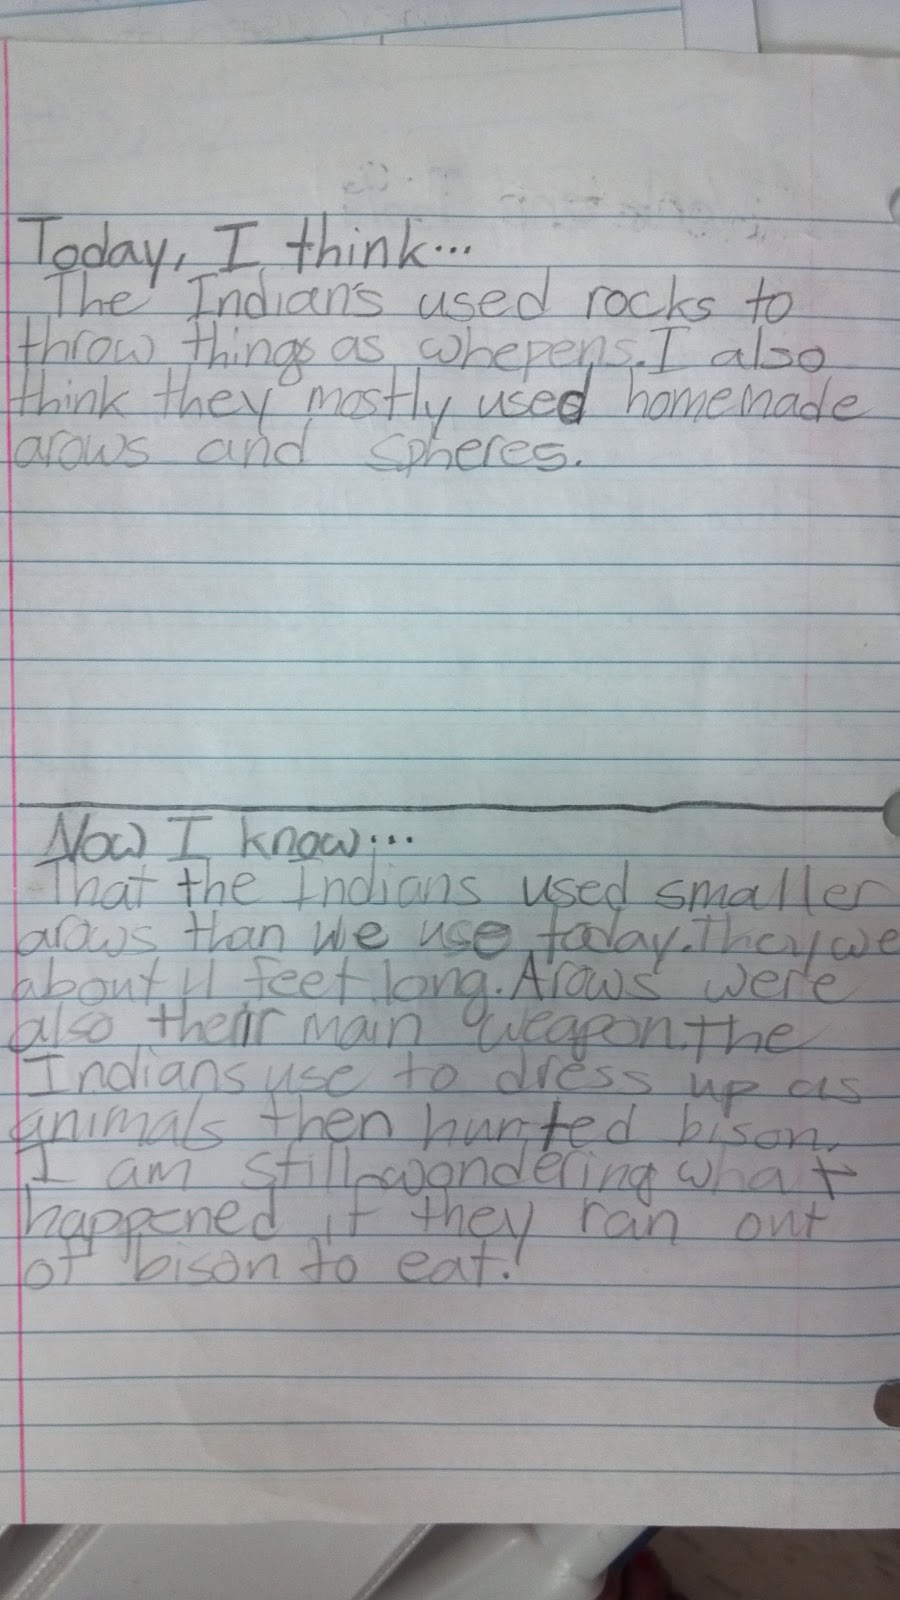 Today, I think...
The Indian's used rocks to
throw things as whepens. I also
think they mostly used homemade
arows and spheres.
Now I know...
That the Indians used smaller
arows than we use today. They we
about 4 feet long. Arows were
also their main weapon. The
Indians use to dress up as
animals then hunted bison.
I am still wondering what
happened if they ran out
of bison to eat!